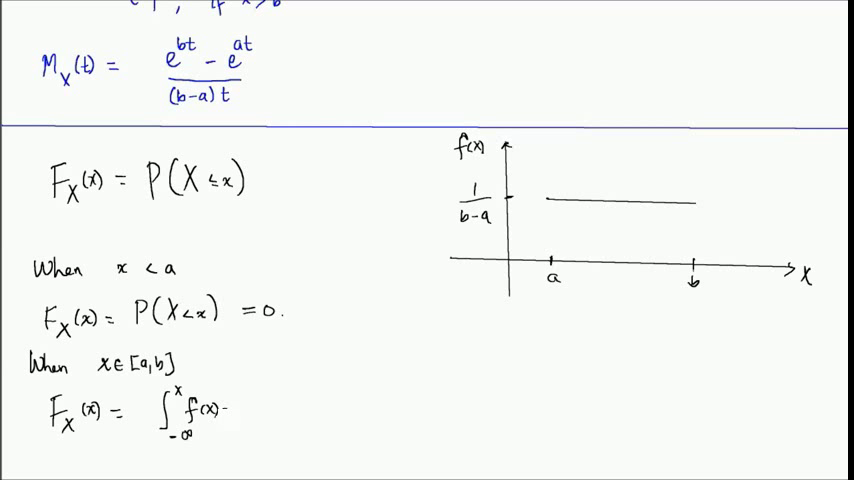 1, if x > b
M_X(t) = (e^{bt} - e^{at}) / ((b-a)t)
F_X(x) = P(X ≤ x)
When x < a
F_X(x) = P(X < x) = 0.
When x ∈ [a,b]
F_X(x) = ∫_{-∞}^{x} f(x) -
f(x)
1/(b-a)
a
b
X